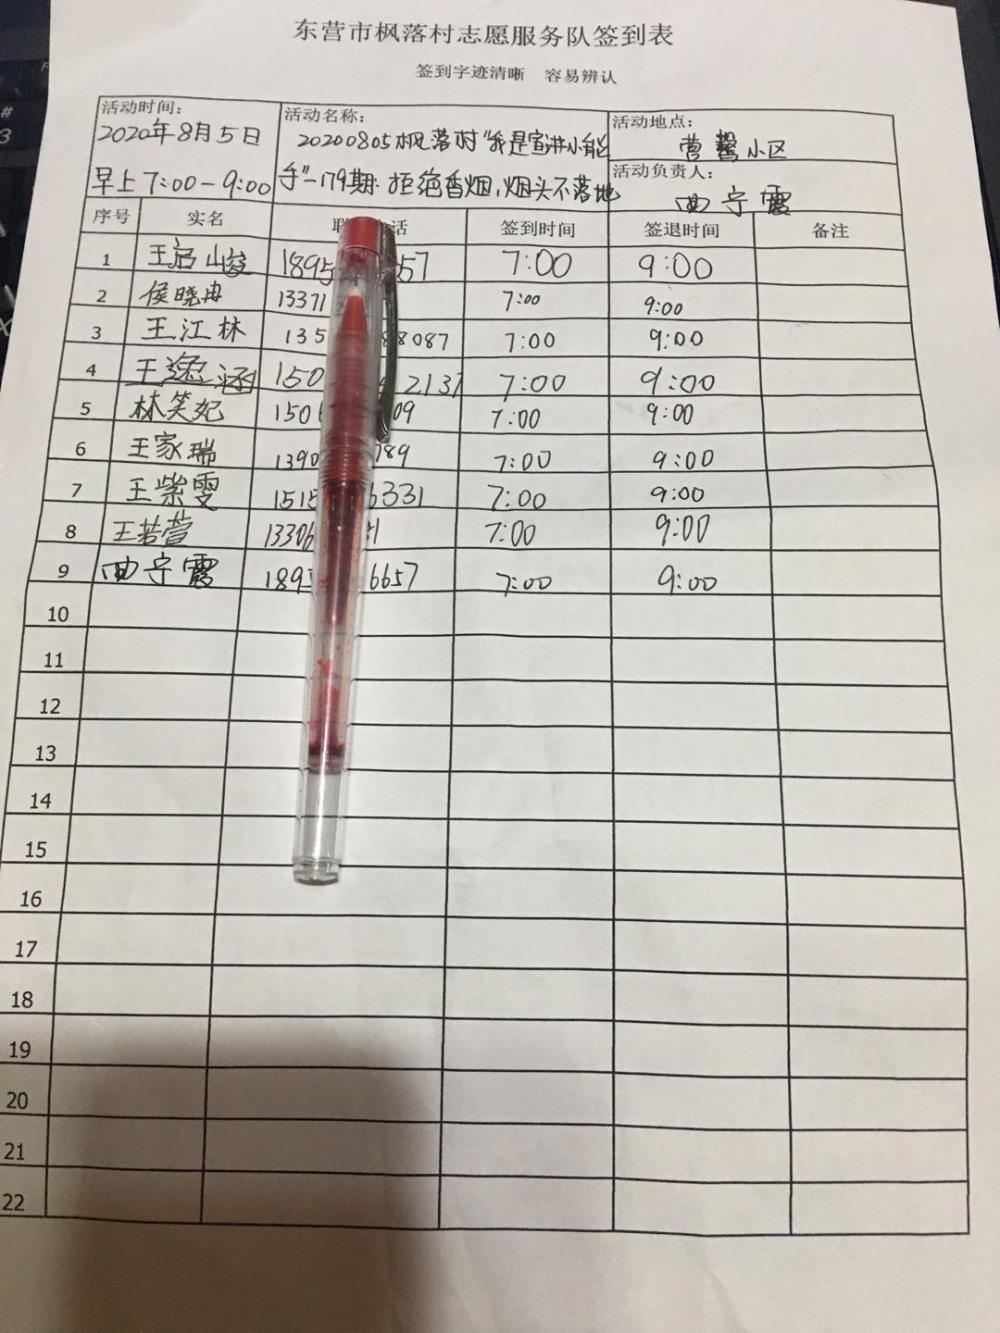 东营市枫落村志愿服务队签到表
签到字迹清晰 容易辨认
活动时间:
2020年8月5日
早上7:00-9:00
活动名称:
20200805枫落村"我是宣讲小能
手"-179期:拒绝香烟,烟头不落地
活动地点:
营馨小区
活动负责人:
曲宁霞
序号 实名 联 话 签到时间 签退时间 备注
1 王启 1895 57 7:00 9:00
2 侯晓冉 13371 7:00 9:00
3 王江林 135 88087 7:00 9:00
4 王逸涵 150 2137 7:00 9:00
5 林笑妃 150 09 7:00 9:00
6 王家瑞 1390 789 7:00 9:00
7 王紫雯 1515 6331 7:00 9:00
8 王若萱 13306 7:00 9:00
9 曲宁霞 1895 6657 7:00 9:00
10
11
12
13
14
15
16
17
18
19
20
21
22